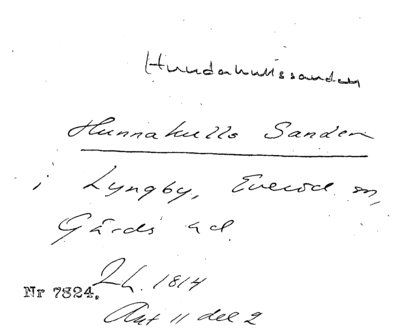 Hundakullssanden
Hunnakulls Sanden
i Lyngby, Everöd sn,
Gärds hd.
Lh. 1814
Nr 7324.
Akt 11 del 2